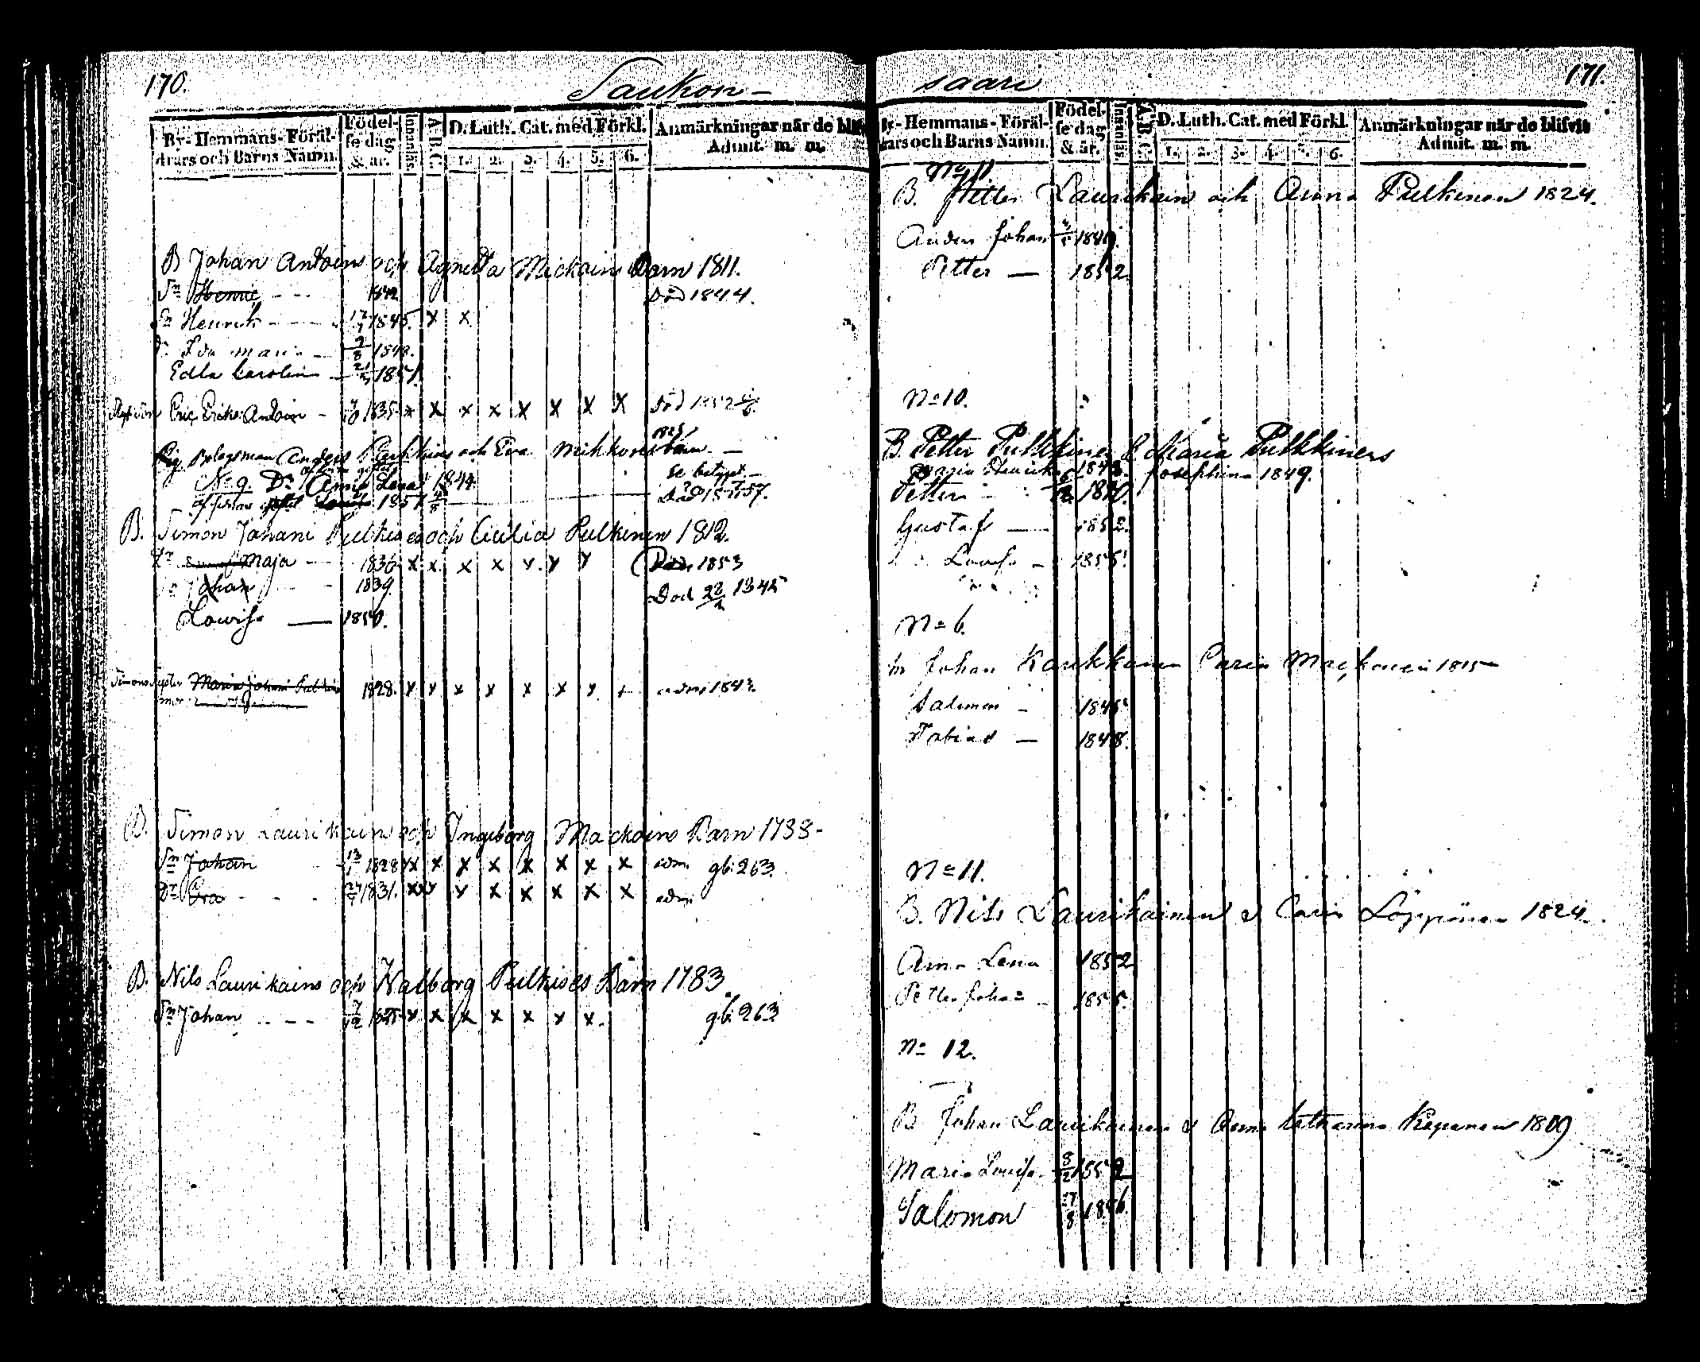 170.
Saukon-
By- Hemmans- Föräl-
drars och Barns Namn.
Födel-
se dag
& år.
Innanläs.
A. B. C.
D. Luth. Cat. med Förkl.
1. 2. 3. 4. 5. 6.
Anmärkningar när de blif
Admit. m. m.
B Johan Antoins och Agneta Mickoins Barn 1811.
Sn Henric - - - 1842 Död 1844.
Sn Henrik - - - 17/7 1845. x x
Dr Ida Maria - 9/8 1848.
Edla Carolin - 1851
Eric Ericks. Antoin - 1835 x x x x x x x x Död 1852
Anders Pulkkins och Eva Mihkons barn. -
No 9. Dr Anna Lena 1844
1851
B. Simon Johans Pulkises och Cicilia Pulkinen 1812.
Maja - 1836 x x x x x x x Död 1853
Johan - 1839. Död 23/2 1845
Lowisa - 1850.
Maria Johans 1828. x x x x x x x + adm 1843
B. Simon Laurikain och Ingeborg Mackoins Barn 1788-
Sn Johan 13/1 1828 x x x x x x x x adm gb. 263.
Dr Eva - - - 27 1831. x x x x x x x x adm
B. Nils Laurikains och Walborg Pulkises Barn 1783
Sn Johan - - - 7/12 x x x x x x x. gb. 263
171.
saari
By- Hemmans- Föräl-
drars och Barns Namn.
Födel-
se dag
& år.
Innanläs.
A. B. C.
D. Luth. Cat. med Förkl
1. 2. 3. 4. 5. 6.
Anmärkningar när de blifvit
Admit. m. m.
No 11
B. Petter Laurikain och Anna Pulkinen 1824.
Anders Johan 1849.
Petter - 1852
No 10.
B. Petter Pulkkinen & Maria Pulkkiners
Maria Henrika 1848. Josephina 1849.
Petter 1850.
Gustaf - 1852.
Lovisa - 1855.
No 6.
Johan Karkkainen Carin 1815
Salomon - 1845
Tobias - 1848.
No 11.
B. Nils Laurikainen & Carin Löppönen 1824.
Anna Lena 1852
Petter Johan - 1855.
No 12.
B Johan Laurikainen & Anna Catharina Repanen 1809
Maria Lovisa. 8/2 1852
Salomon 17/8 1856